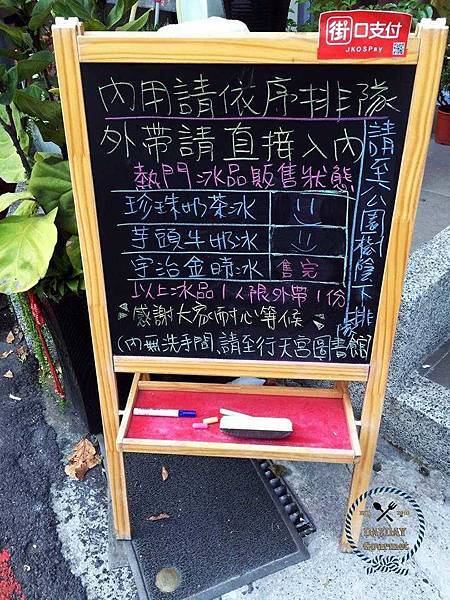 街口支付
JKOSPay
內用請依序排隊
外帶請直接入內
熱門冰品販售狀態
珍珠奶茶冰
芋頭牛奶冰
宇治金時冰 售完
以上冰品1人限外帶1份
感謝大家耐心等候
(內無洗手間,請至行天宮圖書館)
請至公園樹蔭下排隊
DAYDAY
Gourmet